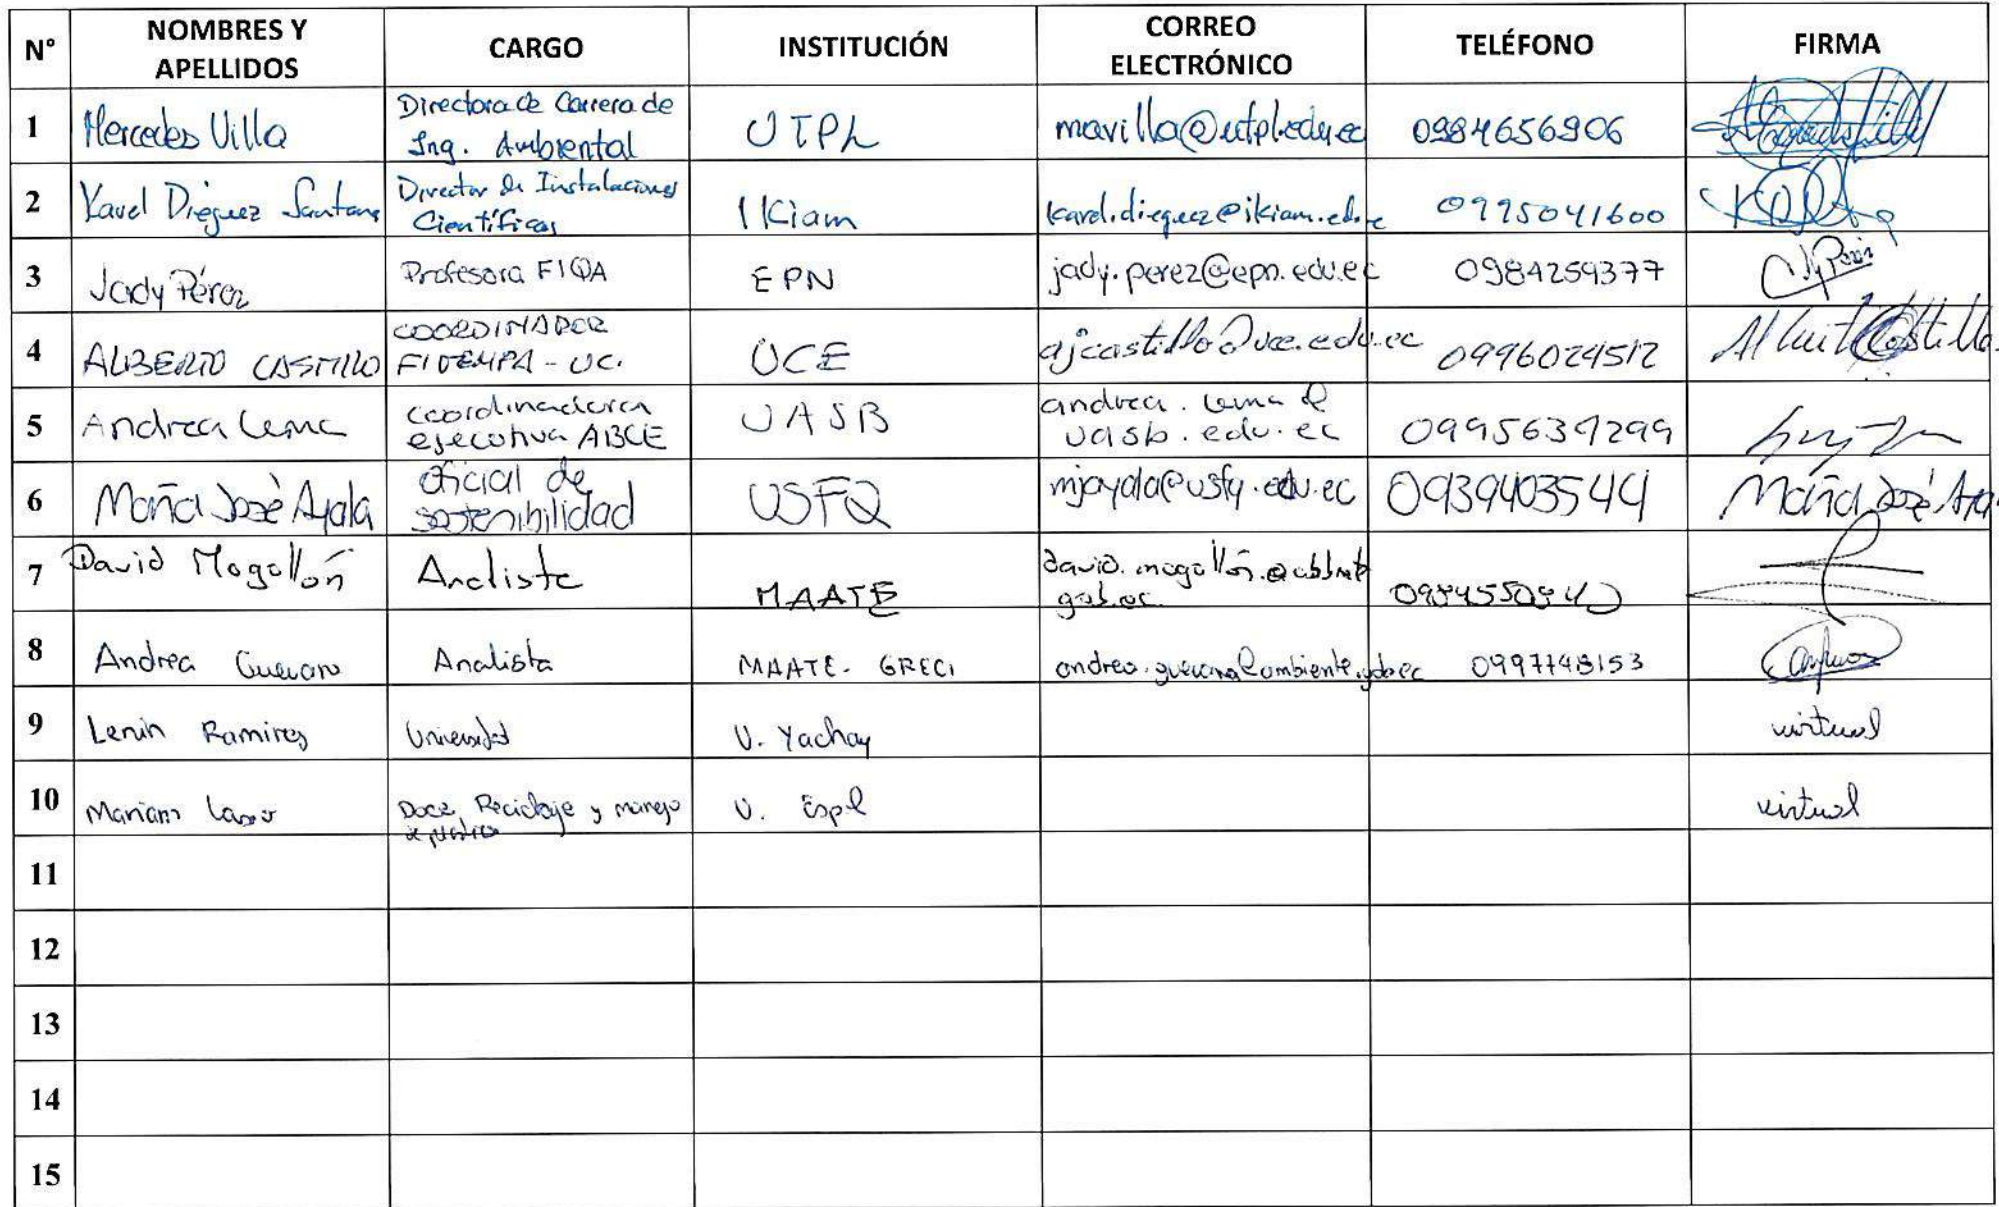 N° NOMBRES Y APELLIDOS CARGO INSTITUCIÓN CORREO ELECTRÓNICO TELÉFONO FIRMA
1 Mercedes Villa Directora de Carrera de Ing. Ambiental UTPL mavilla@utpl.edu.ec 0984656906
2 Karel Diéguez Santana Director de Instalaciones Científicas IKiam karel.dieguez@ikiam.edu.ec 0995041600
3 Jady Pérez Profesora FIQA EPN jady.perez@epn.edu.ec 0984259377
4 ALBERTO CASTILLO COORDINADOR UCE ajcastillo@uce.edu.ec 0996024512
5 Andrea Lema coordinadora ejecutiva UASB andrea.lema@uasb.edu.ec
6 María José Ayala Oficial de sostenibilidad USFQ mjayala@usfq.edu.ec 0939403544 María José Aya
7 David Mogollón Analista MAATE
8 Andrea Guevara Analista MAATE- GRECI andrea.guevara@ambiente.gob.ec
9 Lenin Ramirez Universidad U. Yachay virtual
10 Mariam Reciclaje y manejo U. Espl virtual
11
12
13
14
15